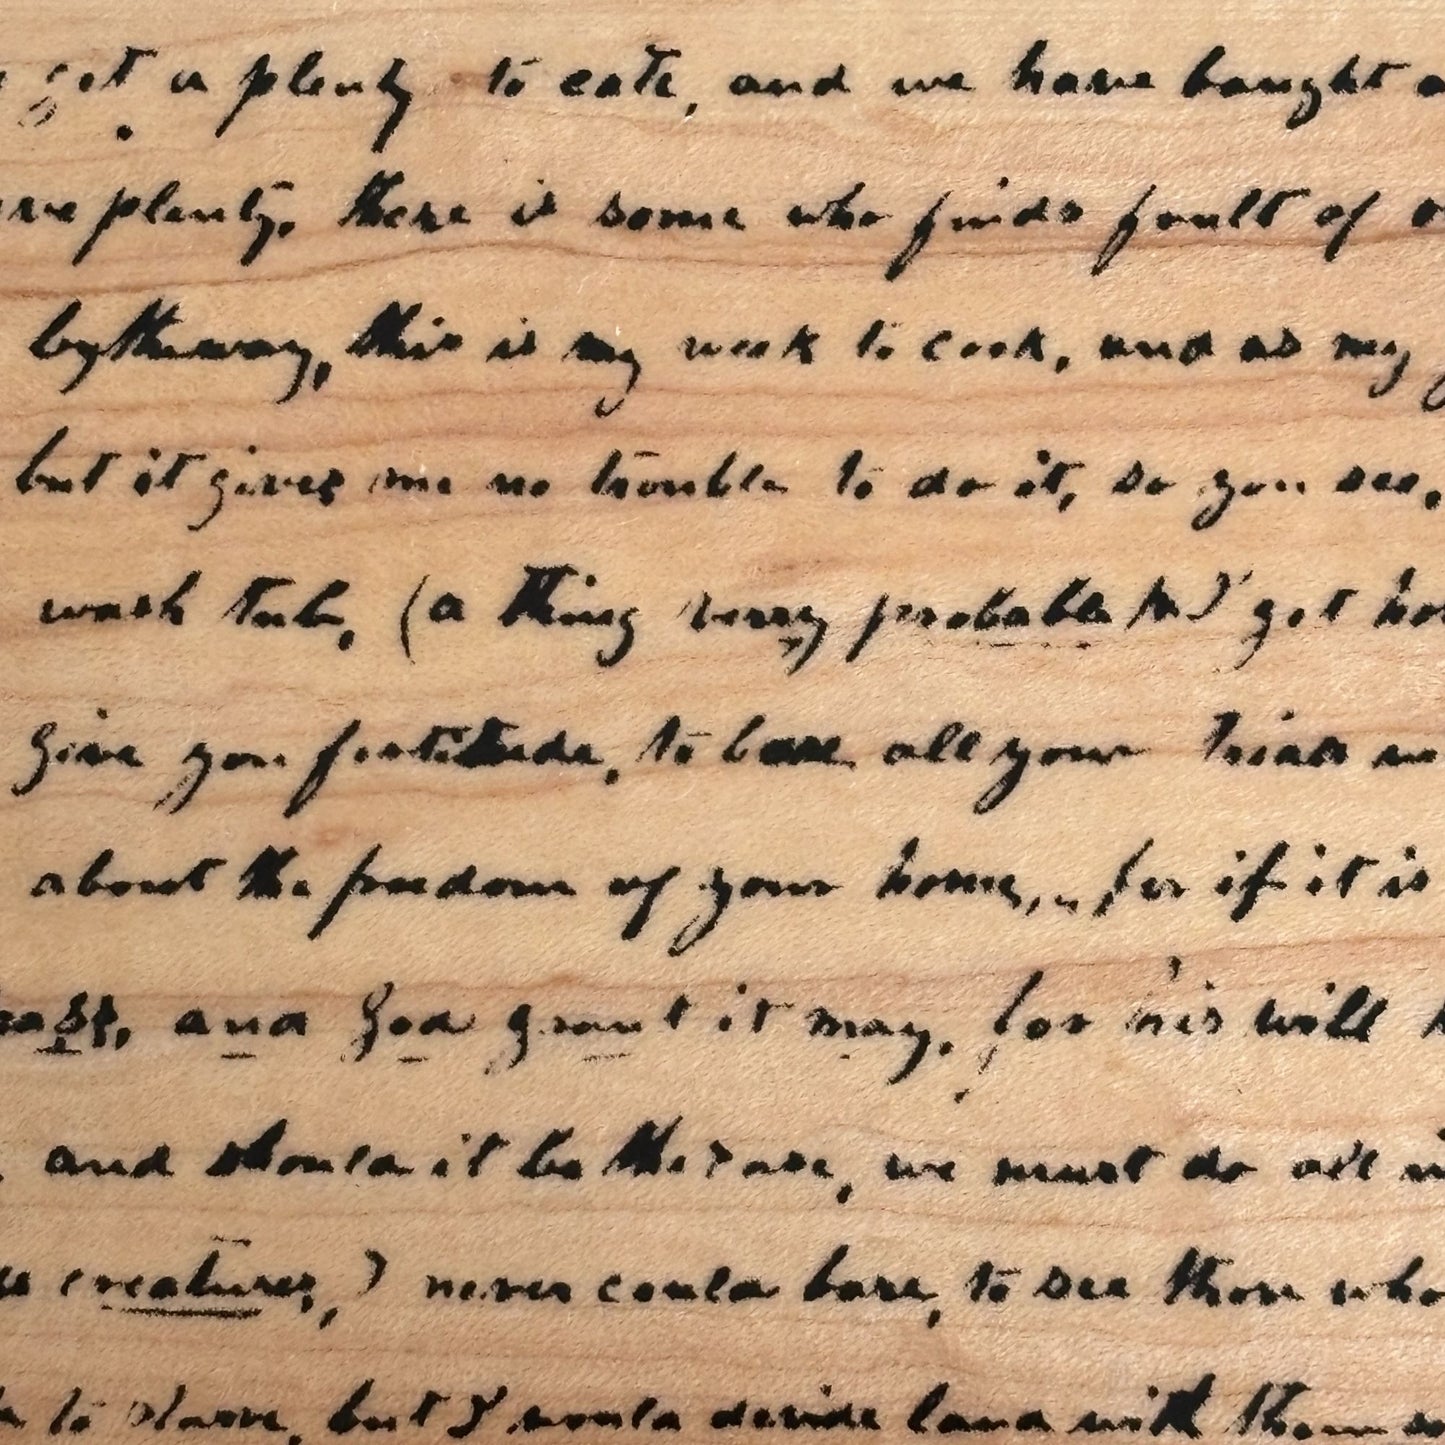 get a plenty to eate, and we have bought
plenty. there is some who finds fault of
by the way, this is my week to cook, and as my
but it gives me no trouble to do it, so you see,
wash tub, (a thing verry probable) I get
give you fortitude, to bare all your trials
about the freedom of your home, for if it is
and God grant it may. for his will
and should it be the case, we must do all
creatures,) never could bare, to see those who
to starve, but I would devide land with them